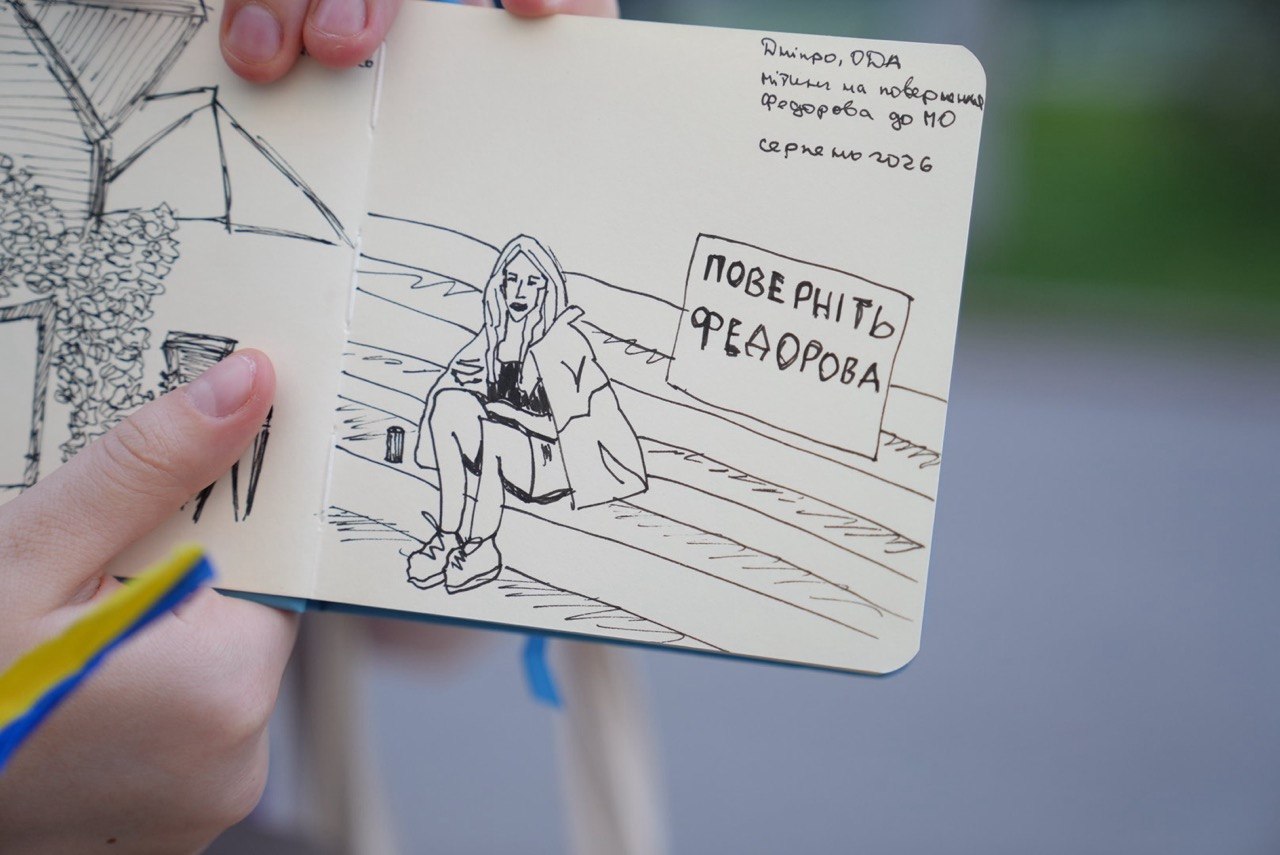 Дніпро, ОДА
мітинг на повернення
Федорова до МО
серпень 2026
ПОВЕРНІТЬ
ФЕДОРОВА